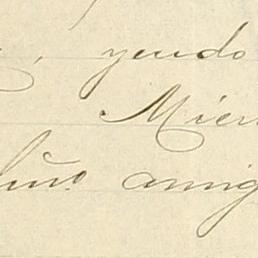 , yendo
Mien
amig